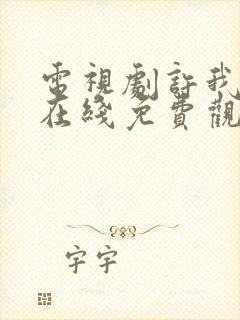 電視劇許我
在綫免費觀
字字